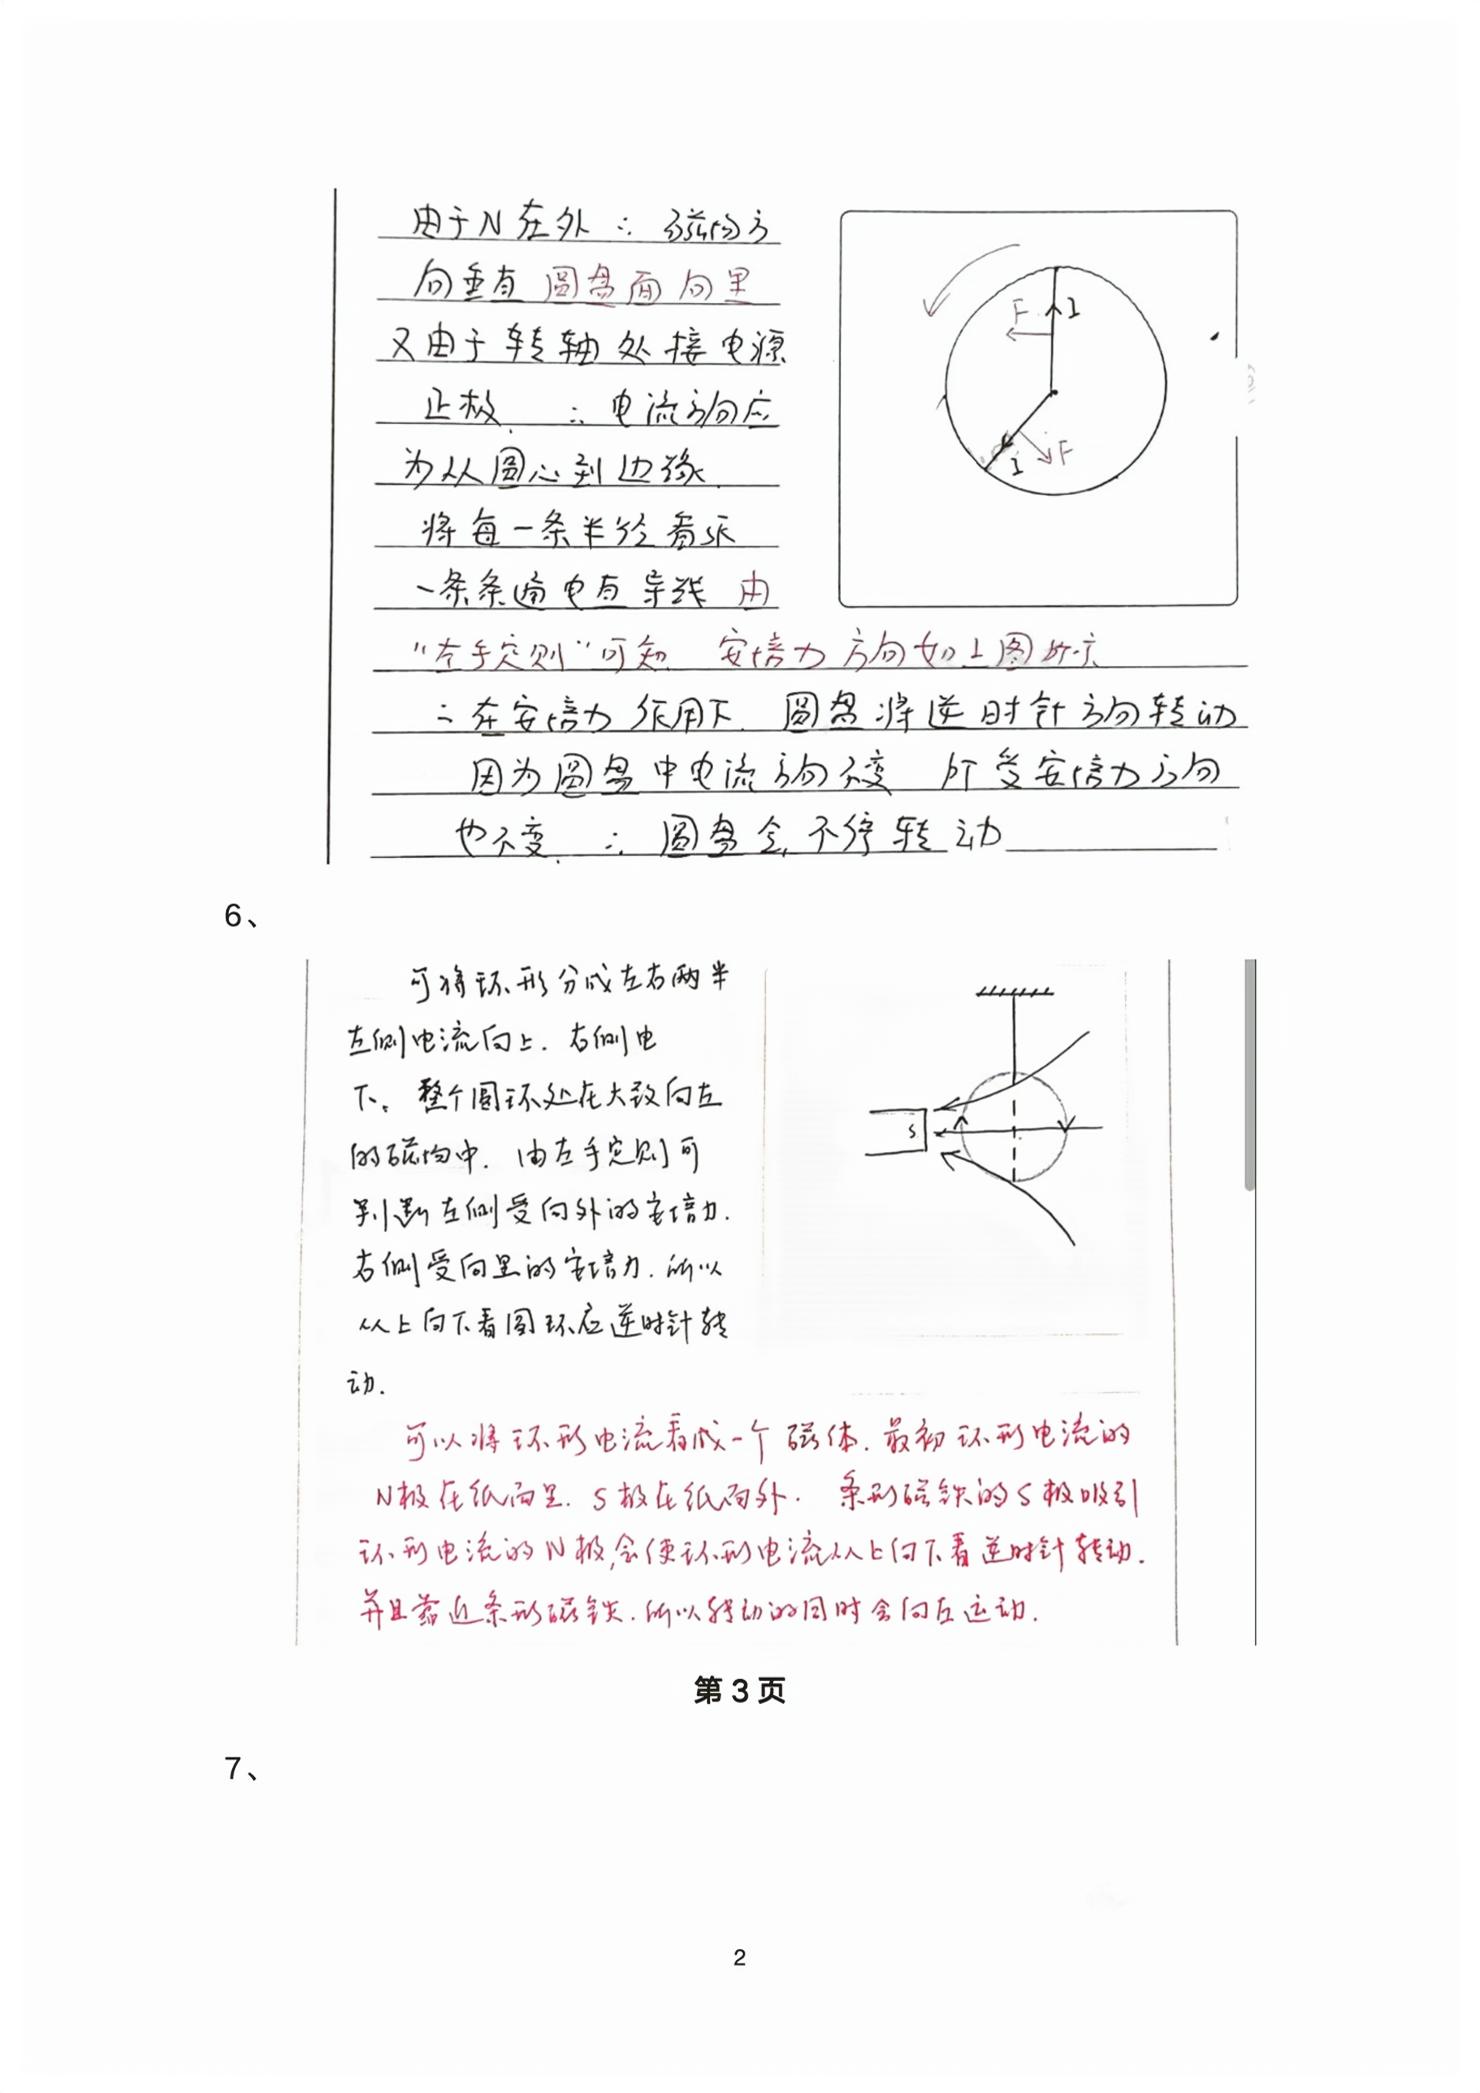 由于N在外∴磁场方
向垂直圆盘面向里
又由于转轴处接电源
正极.∴电流方向应
为从圆心到边缘.
将每一条半径看成
一条条通电直导线 由
"左手定则"可知 安培力方向如上图所示
∴在安培力作用下.圆盘将逆时针方向转动
因为圆盘中电流方向不变 所受安培力方向
也不变.∴圆盘会不停转动
F I
I F
6、
可将环形分成左右两半
左侧电流向上.右侧电
下。整个圆环处在大致向左
的磁场中.由左手定则可
判断左侧受向外的安培力.
右侧受向里的安培力.所以
从上向下看圆环应逆时针转
动.
S
可以将环形电流看成一个磁体.最初环形电流的
N极在纸面里.S极在纸面外.条形磁铁的S极吸引
环形电流的N极,会使环形电流从上向下看逆时针转动.
并且靠近条形磁铁.所以转动的同时会向左运动.
第 3 页
7、
2